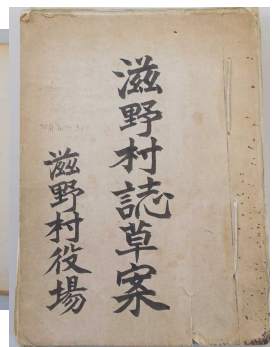 滋野村誌草案
滋野村役場